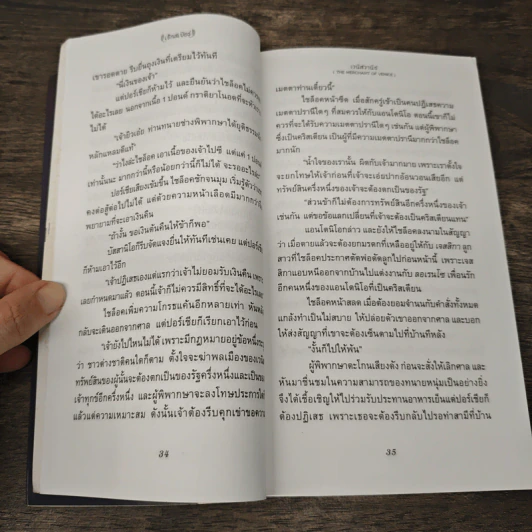 เขารอดตาย รีบยื่นถุงเงินที่เตรียมไว้ทันที
"นี่เงินของเจ้า"
แต่ปอร์เชียก็ห้ามไว้ และยืนยันว่าไชล็อคไม่ควร
ได้อะไรเลย นอกจากเนื้อ 1 ปอนด์
ไม่ได้
"เจ้ายิวเอ๋ย ท่านทนายช่างพิพากษาได้ยุติธรรม
หลักแหลมดีแท้"
"ว่าไงล่ะไชล็อค เอาเนื้อของเจ้าไปซี แต่แค่ 1 ปอนด์
เท่านั้นนะ มากกว่านี้หรือน้อยกว่านี้ก็ไม่ได้
ปอร์เชียเสียงเข้มขึ้น ไชล็อคชักจนมุม เริ่มรู้ตัวว่า
คงต่อสู้ต่อไปไม่ได้ แต่ด้วยความหน้าเลือดมีมากกว่า
พยายามที่จะเอาเงินคืน
"ถ้างั้น ขอเงินต้นคืนให้ข้าก็พอ"
บัสสานิโอก็รีบจัดแจงยื่นให้ทันทีเช่นเคย แต่ปอร์เชีย
ก็ห้ามเอาไว้อีก
"เจ้าปฏิเสธเองแต่แรกว่าเจ้าไม่ยอมรับเงินคืน เพราะ
เลยกำหนดมาแล้ว ตอนนี้เจ้าก็ไม่ควรมีสิทธิ์ที่จะได้อะไร
ไชล็อคเพิ่มความโกรธแค้นอีกหลายเท่า หันหลัง
กลับจะเดินออกจากศาล แต่ปอร์เชียก็เรียกเอาไว้ก่อน
"เจ้ายังไปไหนไม่ได้ เพราะมีกฎหมายอยู่ข้อหนึ่ง
ว่า ชาวต่างชาติคนใดก็ตาม ตั้งใจจะฆ่าพลเมืองของเวนิส
ทรัพย์สินของผู้นั้นจะต้องตกเป็นของรัฐครึ่งหนึ่งและเป็นของ
เจ้าทุกข์อีกครึ่งหนึ่ง และผู้พิพากษาจะลงโทษประการใด
แล้วแต่ความเหมาะสม ดังนั้นเจ้าต้องรีบคุกเข่าขอความ
34
เวนิสวานิช
( THE MERCHANT OF VENICE )
เมตตาท่านเดี๋ยวนี้"
ไชล็อคหน้าซีด เมื่อสักครู่เข้าเป็นคนปฏิเสธความ
เมตตาปรานีใดๆ ที่สมควรให้กับแอนโตนิโอ ตอนนี้เขาก็ไม่
ควรที่จะได้รับความเมตตาปรานีใดๆ เช่นกัน แต่ผู้พิพากษา
ซึ่งเป็นคริสเตียน เป็นผู้ที่มีความเมตตาปรานีมากกว่าไชล็อค
มากนัก
"น้ำใจของเรานั้น ผิดกับเจ้ามากมาย เพราะเราตั้งใจ
จะยกโทษให้เจ้าก่อนที่เจ้าจะเอ่ยปากอ้อนวอนเสียอีก แต่
ทรัพย์สินครึ่งหนึ่งของเจ้าจะต้องตกเป็นของรัฐ"
"ส่วนข้าก็ไม่ต้องการทรัพย์สินอีกครึ่งหนึ่งของเจ้า
เช่นกัน แต่ขอข้อแลกเปลี่ยนที่เจ้าจะต้องเป็นคริสเตียนแทน"
แอนโตนิโอกล่าว และยังให้ไชล็อคลงนามในสัญญา
ว่า เมื่อตายแล้วจะต้องยกมรดกที่เหลืออยู่ให้กับ เจสสิกา ลูก
สาวที่ไชล็อคประกาศตัดพ่อตัดลูกไปก่อนหน้านี้ เพราะเจส
สิกาแอบหนีออกจากบ้านไปแต่งงานกับ ลอเรนโซ เพื่อนรัก
อีกคนหนึ่งของแอนโตนิโอที่เป็นคริสเตียน
ไชล็อคหน้าสลด เมื่อต้องยอมจำนนกับคำสั่งทั้งหมด
แกล้งทำเป็นไม่สบาย ให้ปล่อยตัวเขาออกจากศาล และบอก
ให้ส่งสัญญาที่เขาจะต้องเซ็นตามไปที่บ้านทีหลัง
"งั้นก็ไปให้พ้น"
ผู้พิพากษาตะโกนเสียงดัง ก่อนจะสั่งให้เลิกศาล และ
หันมาชื่นชมในความสามารถของทนายหนุ่มเป็นอย่างยิ่ง
จึงได้เชื้อเชิญให้ไปร่วมรับประทานอาหารเย็นแต่ปอร์เชียก็
ต้องปฏิเสธ เพราะเธอจะต้องรีบกลับไปรอท่าสามีที่บ้าน
35